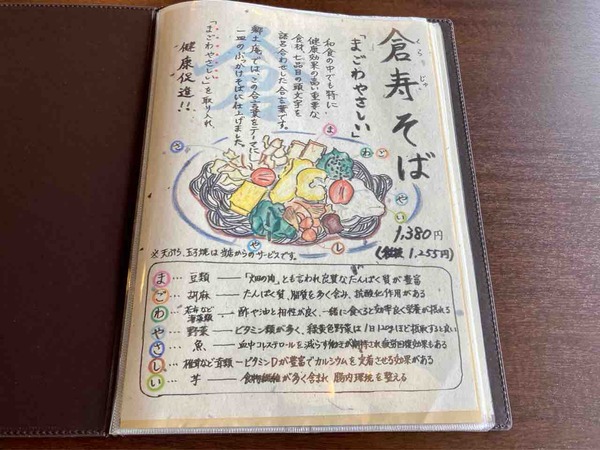 倉寿そば
くらじゅ
「まごわやさしい」
和食の中でも特に
健康効果の高い重要な
食材、七品目の頭文字を
語呂合わせした合言葉です。
郷土庵では、この合言葉をテーマにし
一皿のぶっかけそばに仕上げました
「まごわやさしい」を取り入れ、
健康促進!!
倉
ま
わ
ご
や
い
し
や
さ
1,380円
(税抜 1,255円)
※天ぷら、玉子焼は当店からのサービスです。
ま … 豆類 ― 「畑の肉」とも言われ良質なたんぱく質が豊富
ご … 胡麻 ― たんぱく質、脂質を多く含み、抗酸化作用がある
わ … わかめなど海藻類 ― 酢や油と相性が良く、一緒に食べると効率良く栄養が摂れる
や … 野菜 ― ビタミン類が多く、緑黄色野菜は1日120gほど摂取すると良い
さ … 魚 ― 血中コレステロールを減らす働きが期待され疲労回復効果もある
し … 椎茸など茸類 ― ビタミンDが豊富でカルシウムを定着させる効果がある
い … 芋 ― 食物繊維が多く含まれ 腸内環境を整える